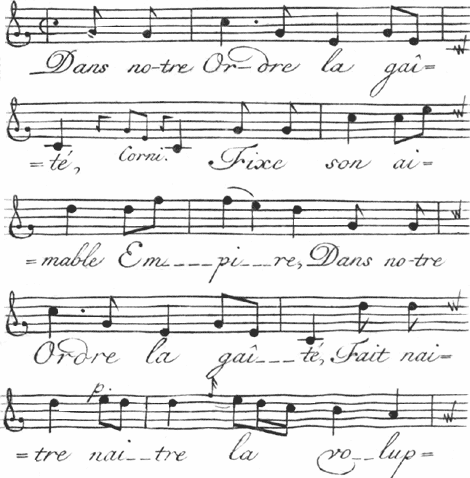 Dans no-tre Or-dre la gaî=
=té, Corni. Fixe son ai=
=mable Em____pi__re, Dans no-tre
Ordre la gaî___té, Fait nai=
p.
=tre nai__tre la vo__lup=